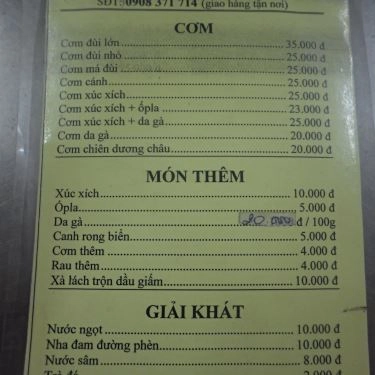 SĐT: 0908 371 714 (giao hàng tận nơi)
CƠM
Cơm đùi lớn 35.000 đ
Cơm đùi nhỏ 25.000 đ
Cơm má đùi 25.000 đ
Cơm cánh 25.000 đ
Cơm xúc xích 25.000 đ
Cơm xúc xích + ốpla 23.000 đ
Cơm xúc xích + da gà 25.000 đ
Cơm da gà 20.000 đ
Cơm chiên dương châu 20.000 đ
MÓN THÊM
Xúc xích 10.000 đ
Ốpla 5.000 đ
Da gà 20 000 đ / 100g
Canh rong biển 5.000 đ
Cơm thêm 4.000 đ
Rau thêm 4.000 đ
Xà lách trộn dầu giấm 10.000 đ
GIẢI KHÁT
Nước ngọt 10.000 đ
Nha đam đường phèn 10.000 đ
Nước sâm 8.000 đ
Trà đá 2.000 đ